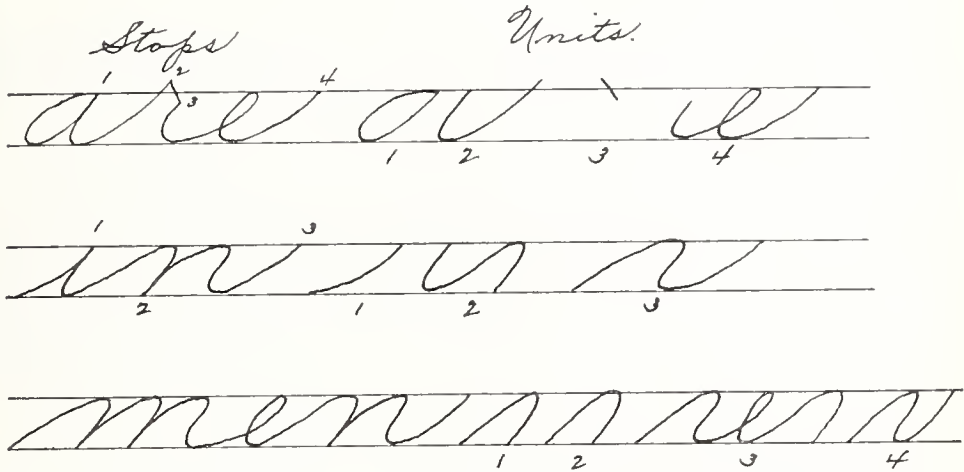 Stops Units.
1 2 3 4
are
1 2 3 4
1 3
in
2 1 2 3
men
1 2 3 4